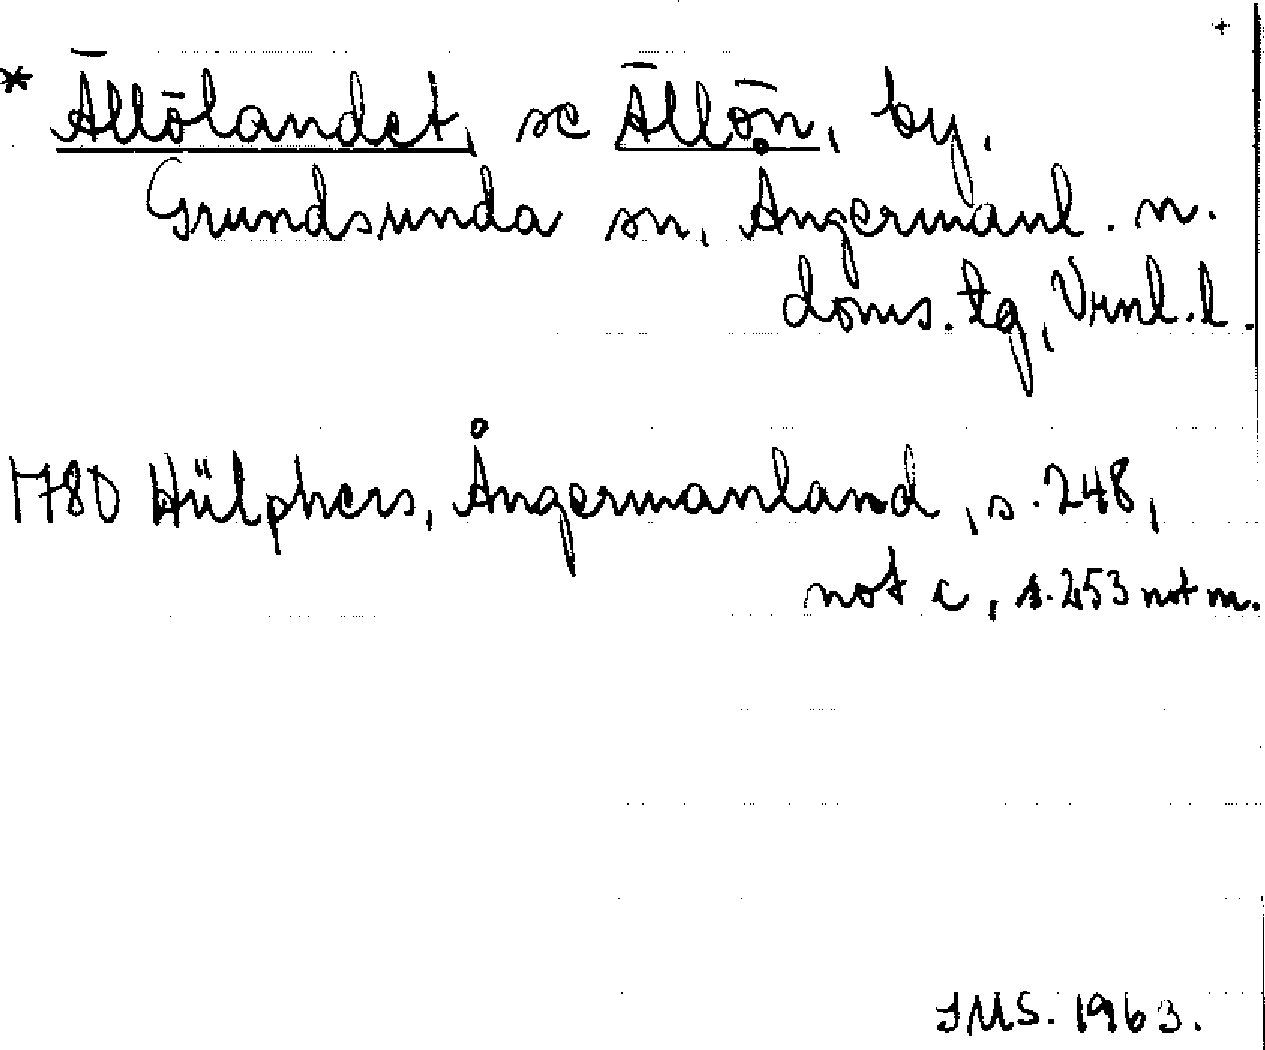 +
* Ällölandet, se Ällön, by.
Grundsunda sn, Ångermanl. n.
doms. tg, Vrnl. l.
1780 Hülphers, Ångermanland, s. 248,
not c, s. 253 not m.
IMS. 1963.